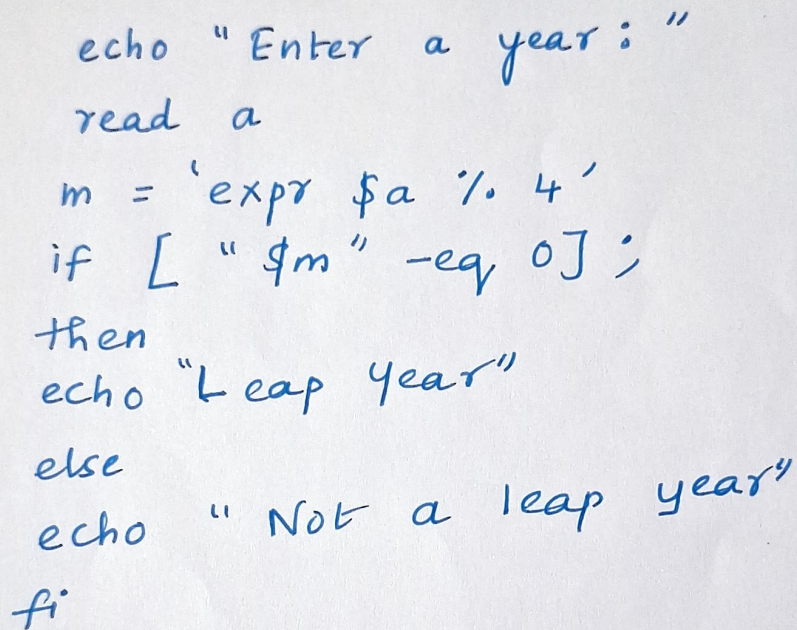 echo "Enter a year:"
read a
m = 'expr $a % 4'
if [ "$m" -eq 0];
then
echo "Leap Year"
else
echo "Not a leap year"
fi